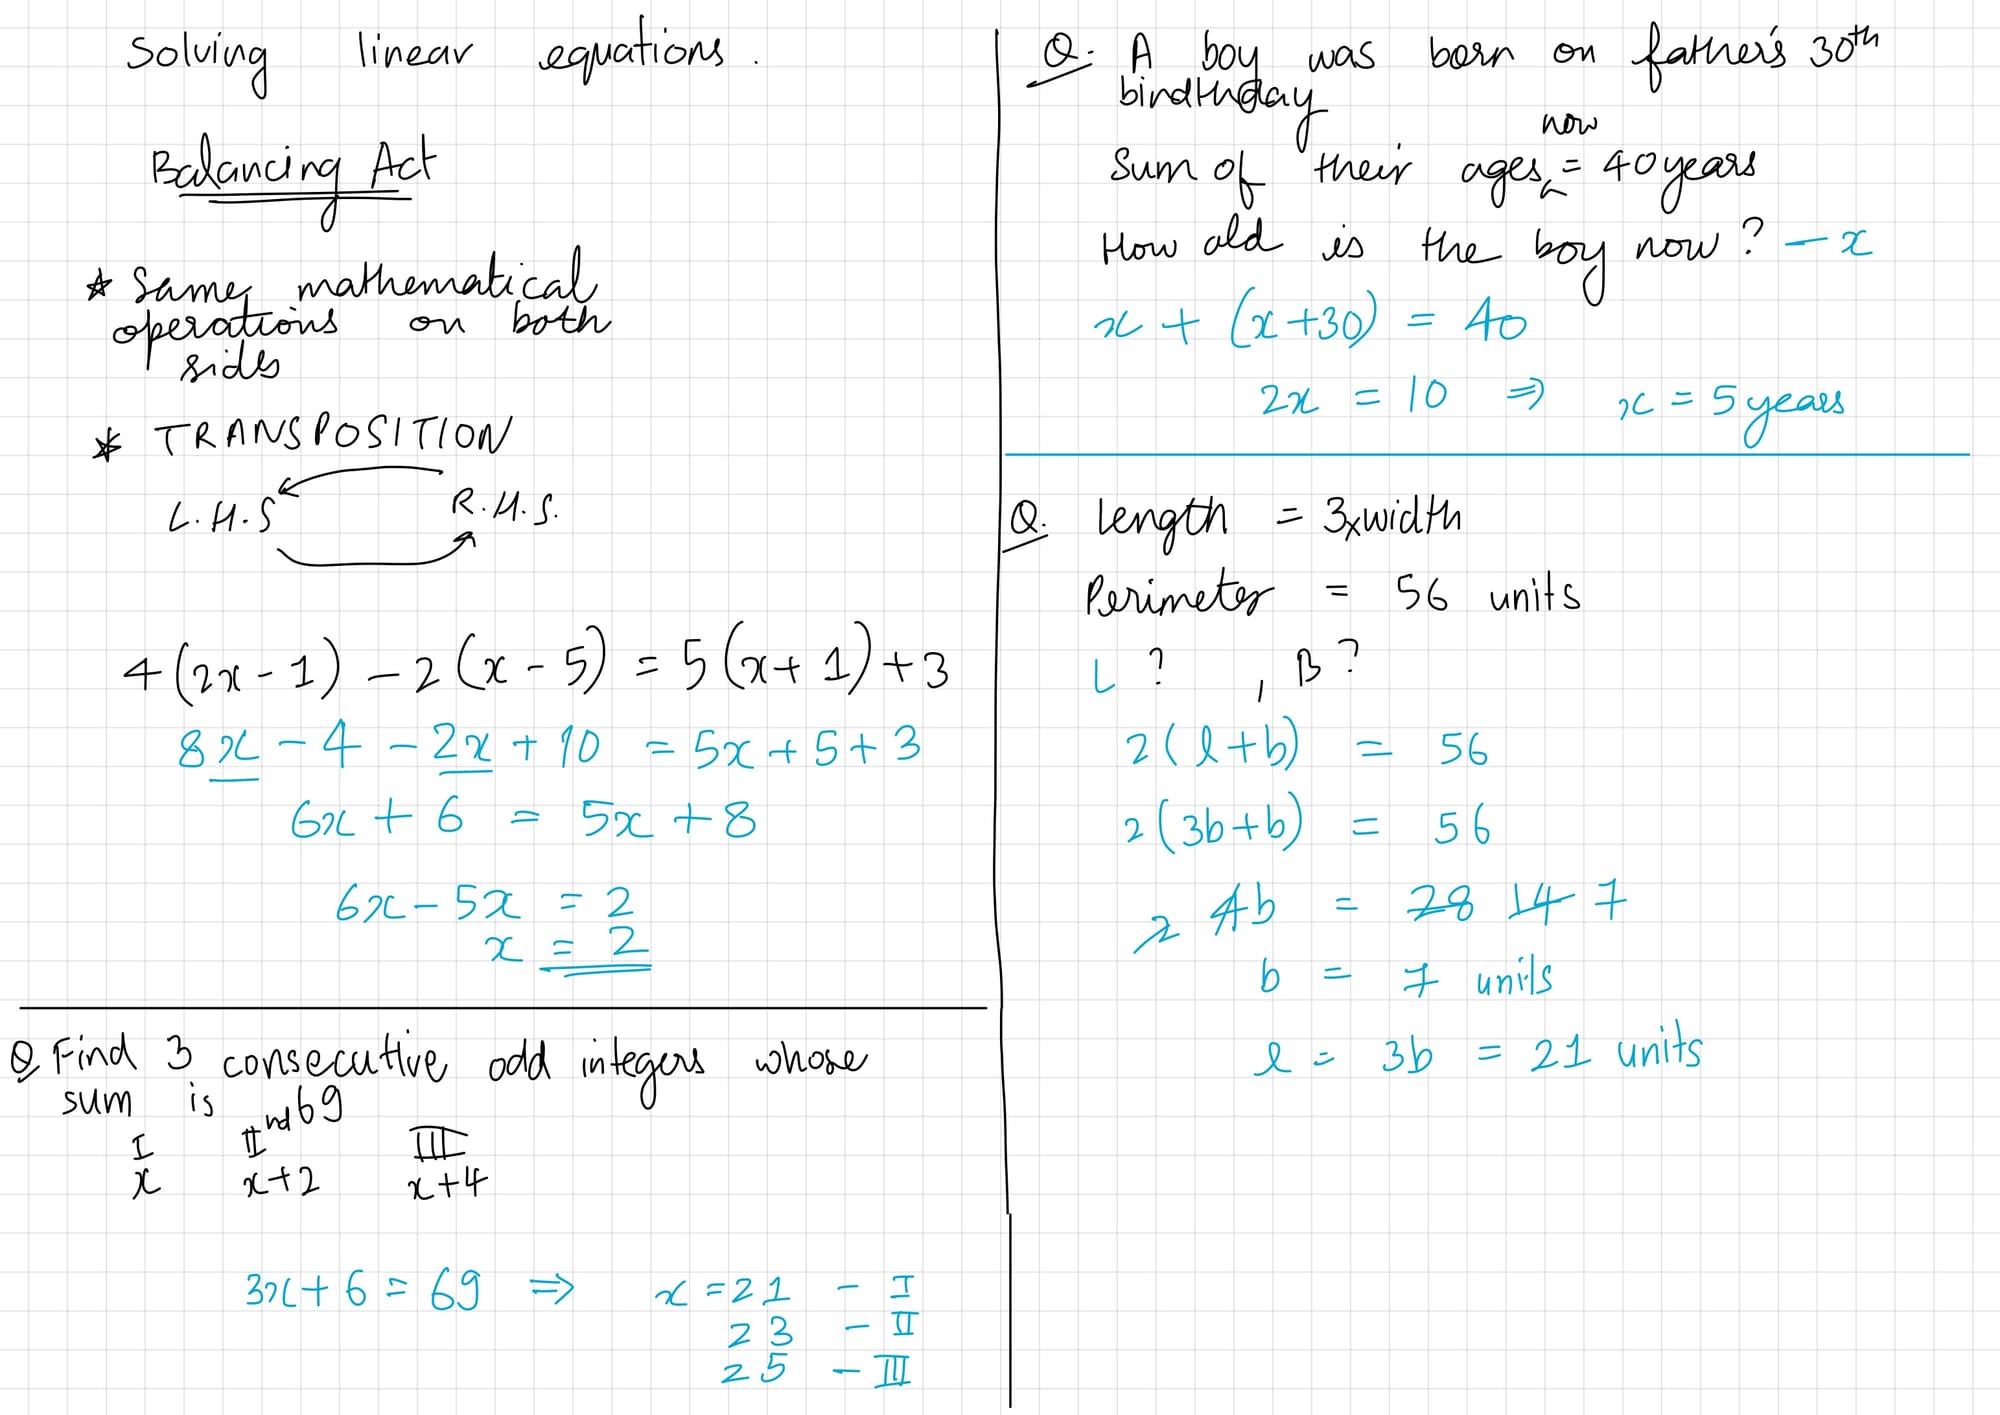 Solving linear equations.
Balancing Act
* Same mathematical
operations on both
sides
* TRANSPOSITION
L.H.S R.H.S.
4(2x - 1) - 2(x - 5) = 5(x + 1) + 3
8x - 4 - 2x + 10 = 5x + 5 + 3
6x + 6 = 5x + 8
6x - 5x = 2
x = 2
Q Find 3 consecutive odd integers whose
sum is 69
I IInd III
x x+2 x+4
3x + 6 = 69 ⇒ x = 21 - I
23 - II
25 - III
Q. A boy was born on father's 30th
bindthday
now
Sum of their ages = 40 years
How old is the boy now? - x
x + (x + 30) = 40
2x = 10 ⇒ x = 5 years
Q. Length = 3xwidth
Perimeter = 56 units
L ? , B ?
2(l + b) = 56
2(3b + b) = 56
2 4b = 28 14 7
b = 7 units
l = 3b = 21 units